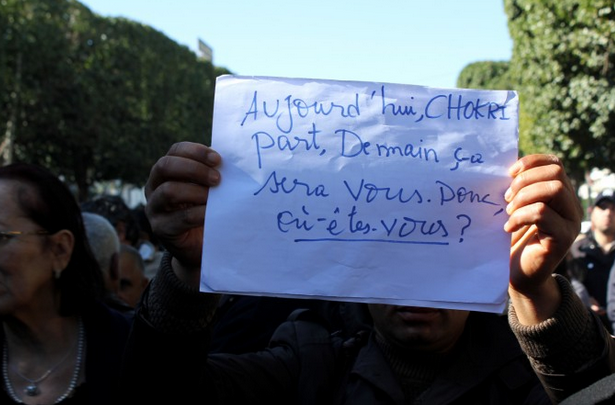 Aujourd'hui, CHOKRI
part, Demain ça
sera vous. Donc,
où-êtes-vous?